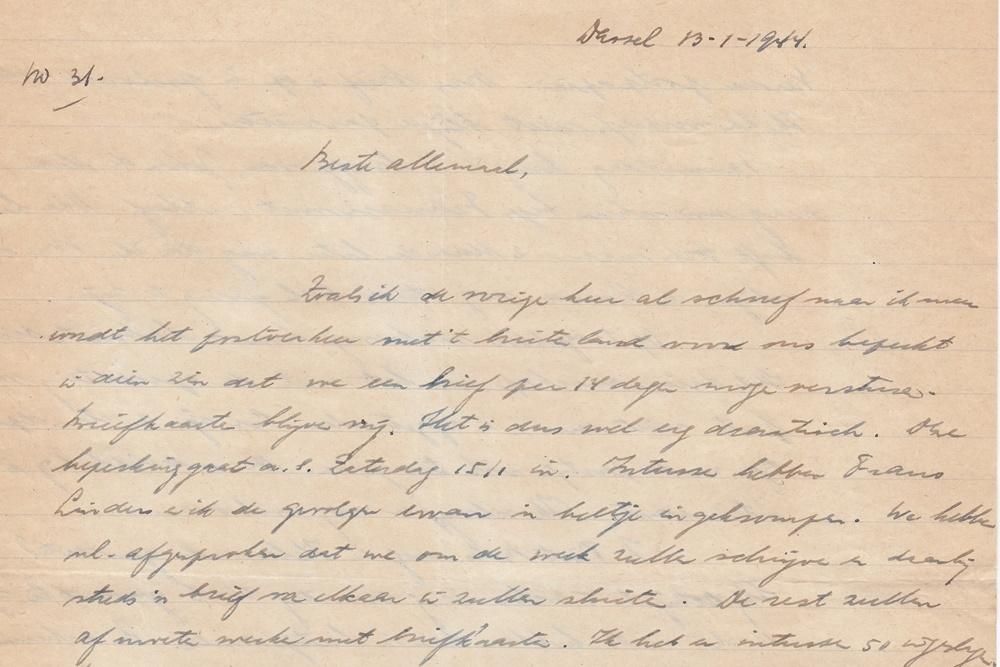 Dassel 13-1-1944.
No 31.
Beste allemaal,
Zoals ik de vorige keer al schreef naar ik meen
wordt het postverkeer met 't buitenland voor ons beperkt
in dien zin dat we een brief per 14 dagen mogen versturen.
Briefkaarten blijven vrij. Het is dus wel erg drastisch. Deze
beperking gaat a.s. Zaterdag 15/1 in. Intussen hebben Frans
Linders en ik de gevolgen ervan 'n beetje ingekrompen. We hebben
nl. afgesproken dat we om de week zullen schrijven en daarbij
steeds 'n brief van elkaar in zullen sluiten. De rest zullen
af moeten werken met briefkaarten. Ik heb er intussen 50